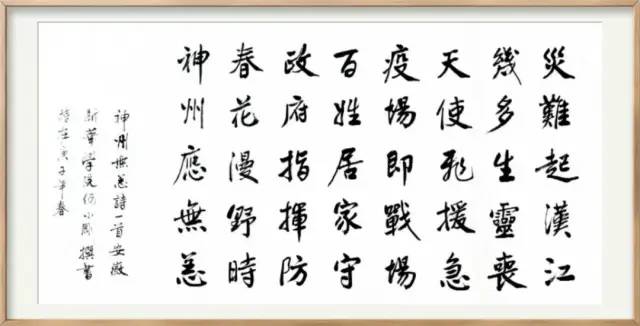 災難起漢江
幾多生靈喪
天使飛援急
疫場即戰場
百姓居家守
政府指揮防
春花漫野時
神州應無恙
神州無恙詩一首安徽
新華學院何小周撰書
時在庚子年春